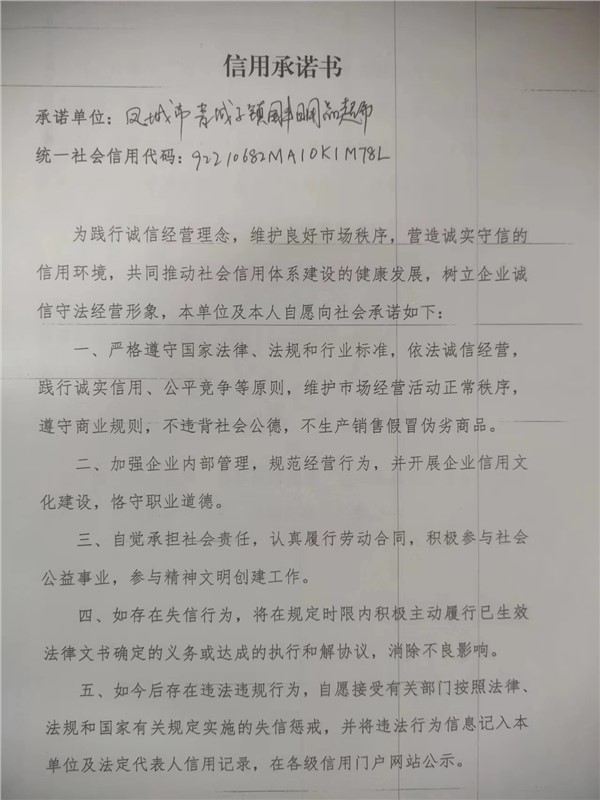 信用承诺书
承诺单位：凤城市青城子镇国丰日用品超市
统一社会信用代码：92210682MA10K1M78L
为践行诚信经营理念，维护良好市场秩序，营造诚实守信的
信用环境，共同推动社会信用体系建设的健康发展，树立企业诚
信守法经营形象，本单位及本人自愿向社会承诺如下：
一、严格遵守国家法律、法规和行业标准，依法诚信经营，
践行诚实信用、公平竞争等原则，维护市场经营活动正常秩序，
遵守商业规则，不违背社会公德，不生产销售假冒伪劣商品。
二、加强企业内部管理，规范经营行为，并开展企业信用文
化建设，恪守职业道德。
三、自觉承担社会责任，认真履行劳动合同，积极参与社会
公益事业，参与精神文明创建工作。
四、如存在失信行为，将在规定时限内积极主动履行已生效
法律文书确定的义务或达成的执行和解协议，消除不良影响。
五、如今后存在违法违规行为，自愿接受有关部门按照法律、
法规和国家有关规定实施的失信惩戒，并将违法行为信息记入本
单位及法定代表人信用记录，在各级信用门户网站公示。